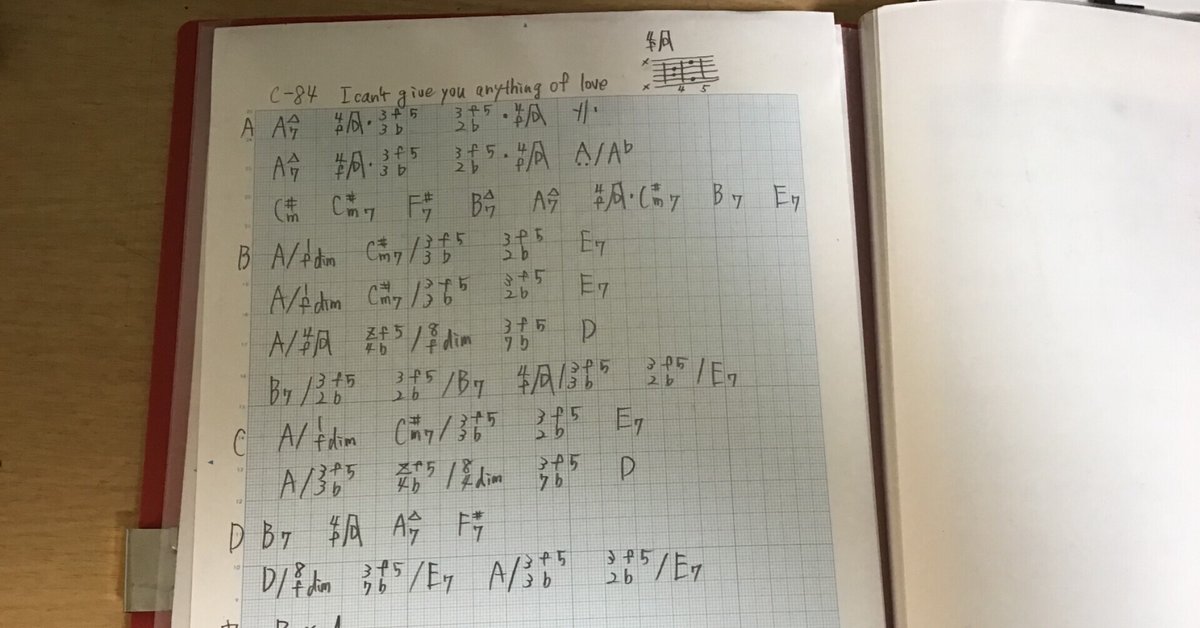 C-84 I can't give you anything of love
× × 4 5
A A△7 3f5 3b 3f5 2b
A△7 3f5 3b 3f5 2b A/Ab
C#m C#m7 F#7 B△7 A△7 C#m7 B7 E7
B A/1f dim C#m7/3f5 3b 3f5 2b E7
A/1f dim C#m7/3f5 3b 3f5 2b E7
A/ zf5 4b/8f dim 3f5 7b D
B7/3f5 2b 3f5 2b/B7 /3f5 3b 3f5 2b/E7
C A/1f dim C#m7/3f5 3b 3f5 2b E7
A/3f5 3b zf5 4b/8 dim 3f5 7b D
D B7 A△7 F#7
D/8f dim 3f5 7b/E7 A/3f5 3b 3f5 2b/E7